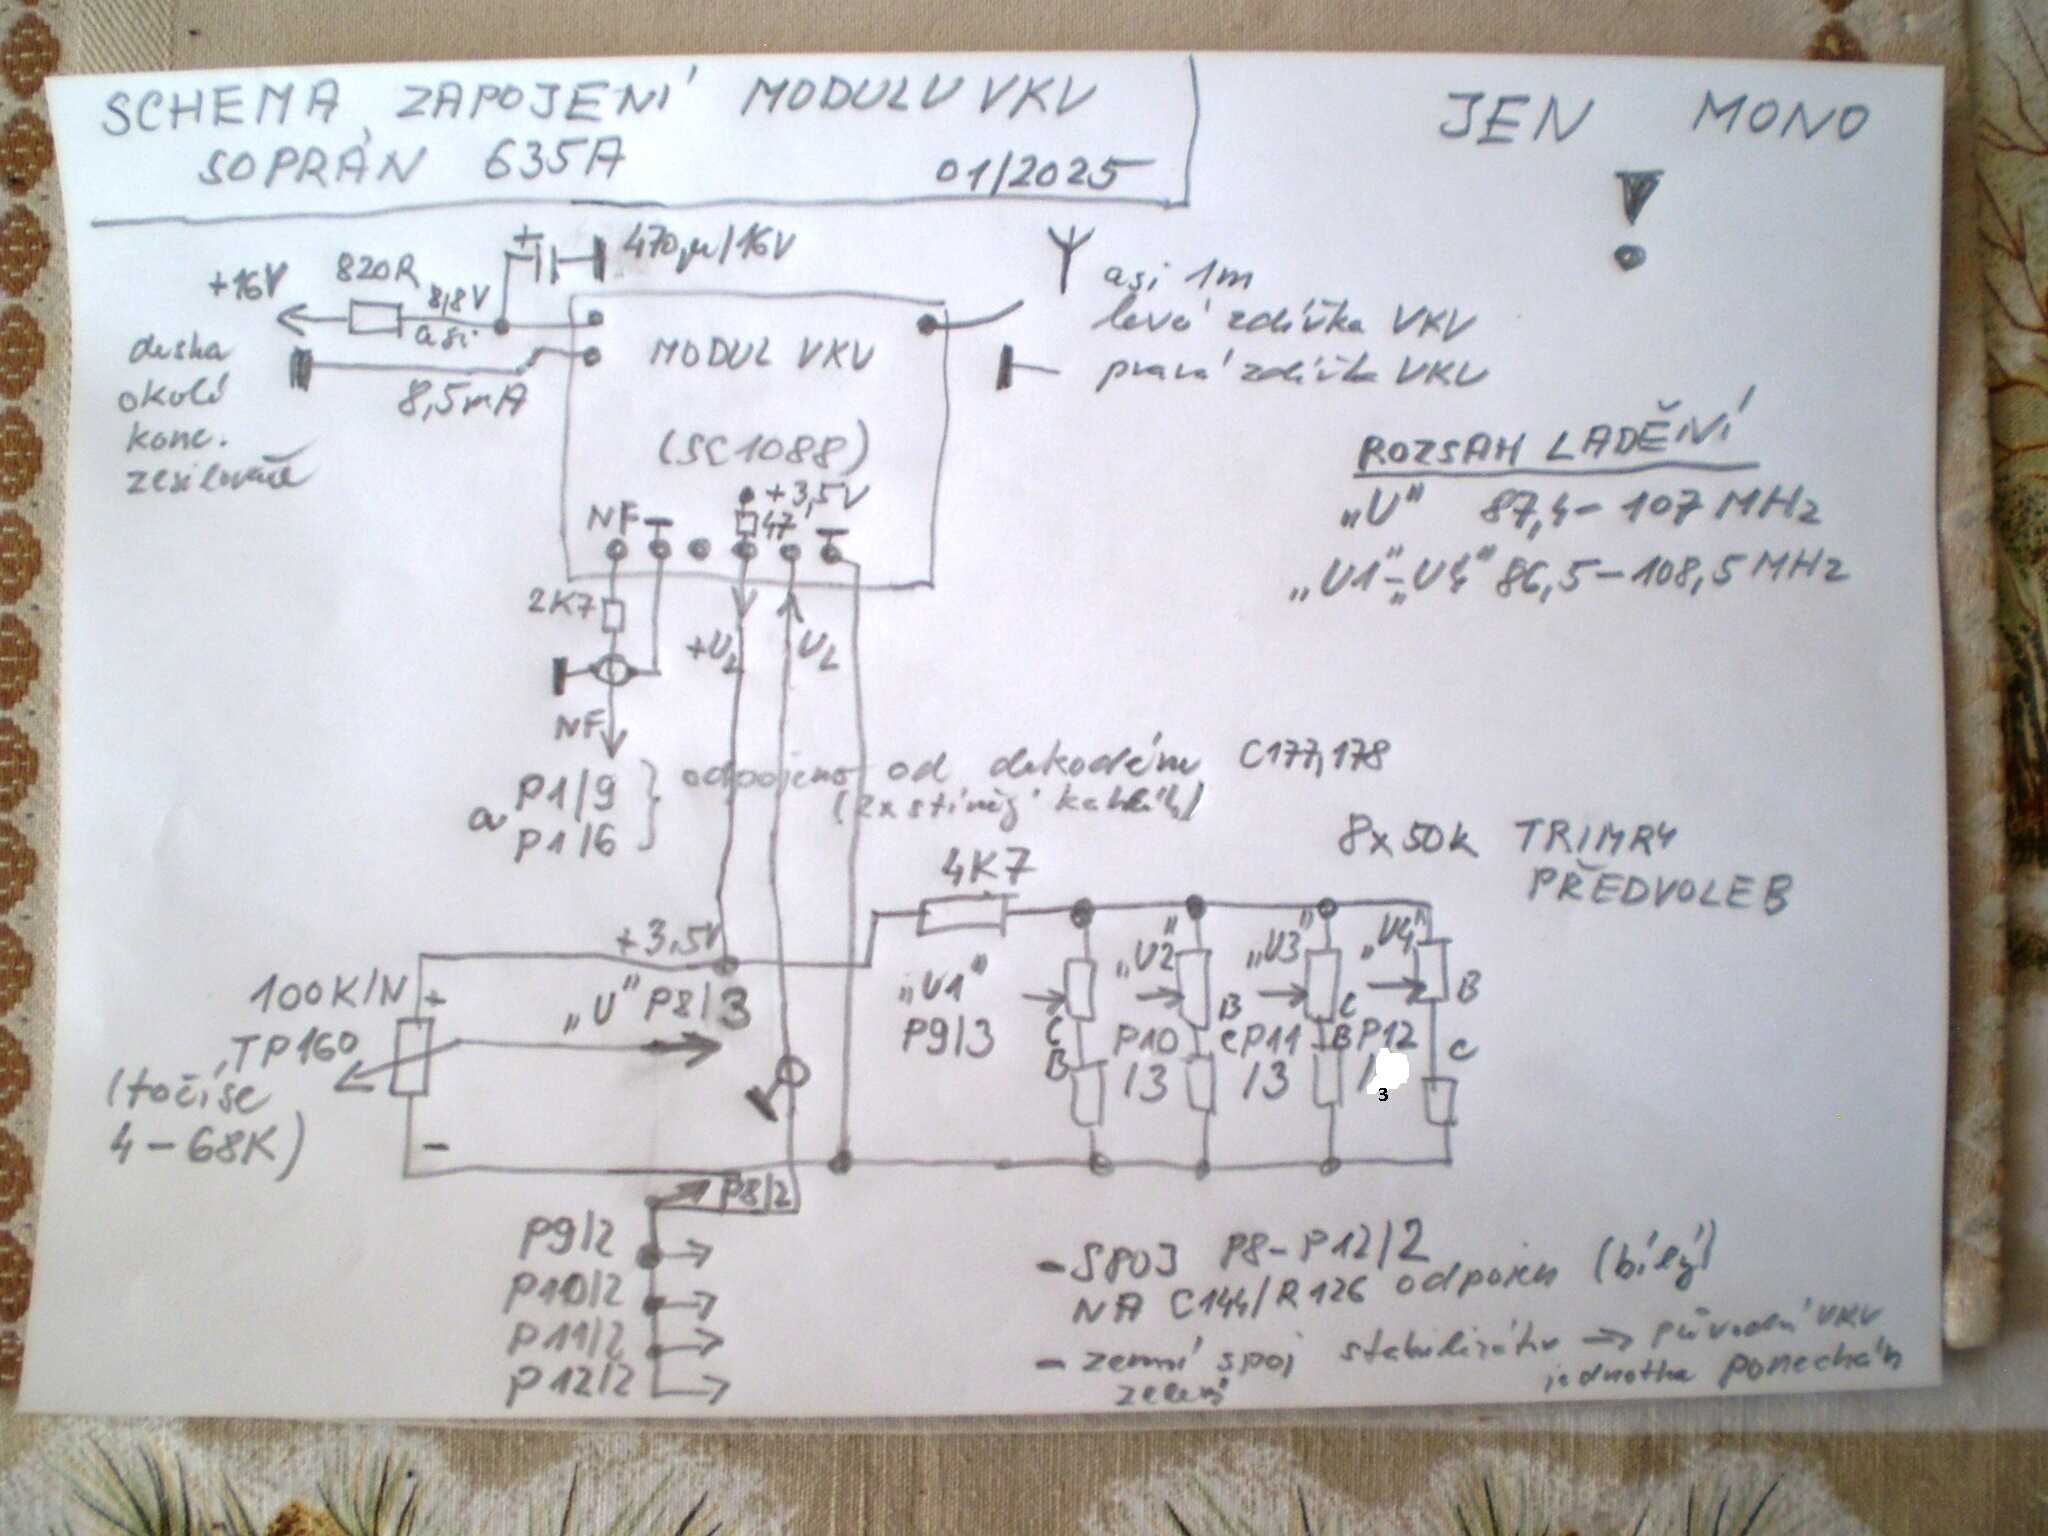 SCHEMA ZAPOJENÍ MODULU VKV
SOPRÁN 635A 01/2025
JEN MONO
!
+16V 820R 8,8V asi + 470µ/16V
asi 1m
levá zdířka VKV
pravá zdířka VKV
deska
okolo
konc.
zesilovače
8,5mA
MODUL VKV
(SC1088)
+3,5V
NF 47
ROZSAH LADĚNÍ
„U" 87,4-107 MHz
„U1"-„U4" 86,5-108,5 MHz
2K7
+UL UL
NF
a P1/9
P1/6
odpojeno od dekodéru C177,178
(2x stíněý kablík)
8x50k TRIMRY
PŘEDVOLEB
4K7
+3,5V
100K/N +
TP160
(točí se
4-68K)
-
„U" P8/3
„U1"
P9/3
C
B
„U2"
B
C
P10
/3
„U3"
C
B
P11
/3
„U4"
B
C
P12
/3
P8/2
P9/2
P10/2
P11/2
P12/2
- SPOJ P8-P12/2
NA C144/R126 odpojen (bílý)
- zemní spoj stabilizátor → původní VKV
zelený jednotka ponechán